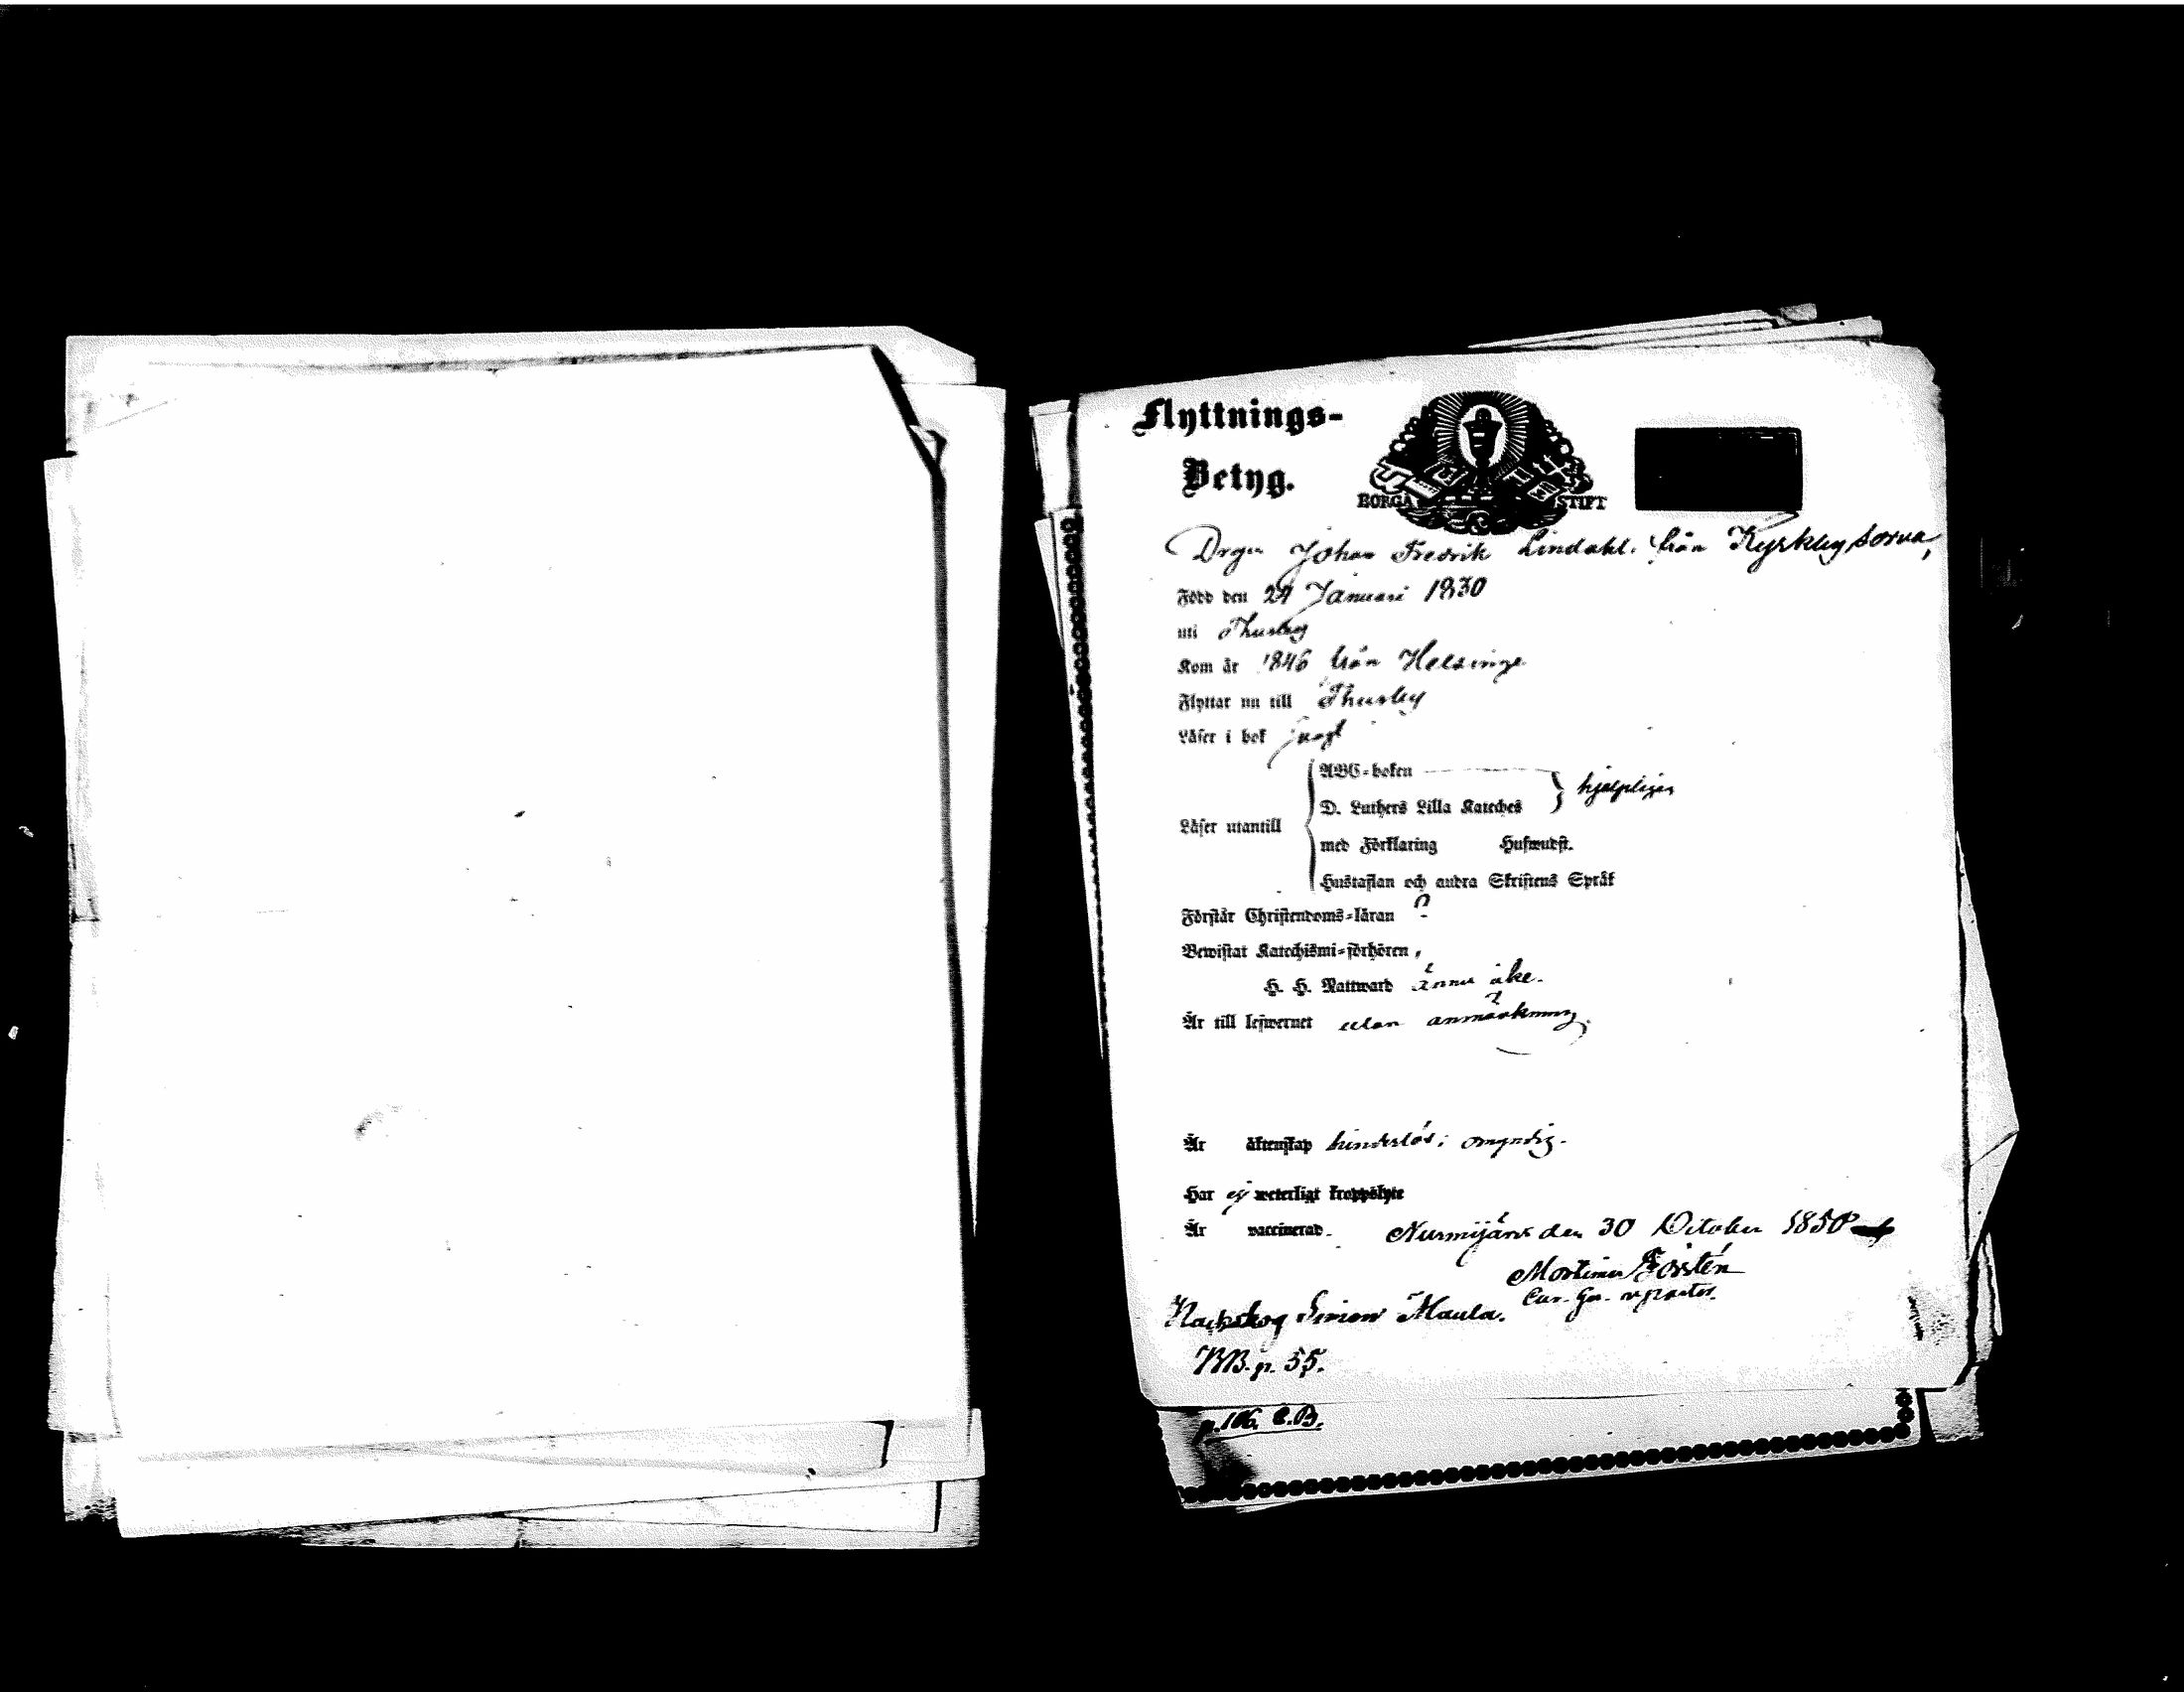 Flyttnings-
Betyg.
BORGÅ STIFT
Drgn Johan Fredrik Lindahl. från Kyrkby sorva,
Född den 29 Januari 1830
uti Thusby
Kom år 1846 från Helsinge
Flyttar nu till Thusby
Läser i bok svagt
ABC-boken
D. Luthers Lilla Kateches } hjelpligen
Läser utantill
med Förklaring Hufwudst.
Hustaflan och andra Skriftens Språk
Förstår Christendoms-läran ?
Bewistat Katechismi-förhören,
H. H. Nattward ännu icke.
Är till lefwernet utan anmärkning.
Är äktenskap hinderlös; omyndig.
Har ej weterligt kroppslyte
Är vaccinerad. Nurmijärvi den 30 October 1850
Mortimer Forstén
Simon Maula.
BB. p. 55.
p. 106. C.B.